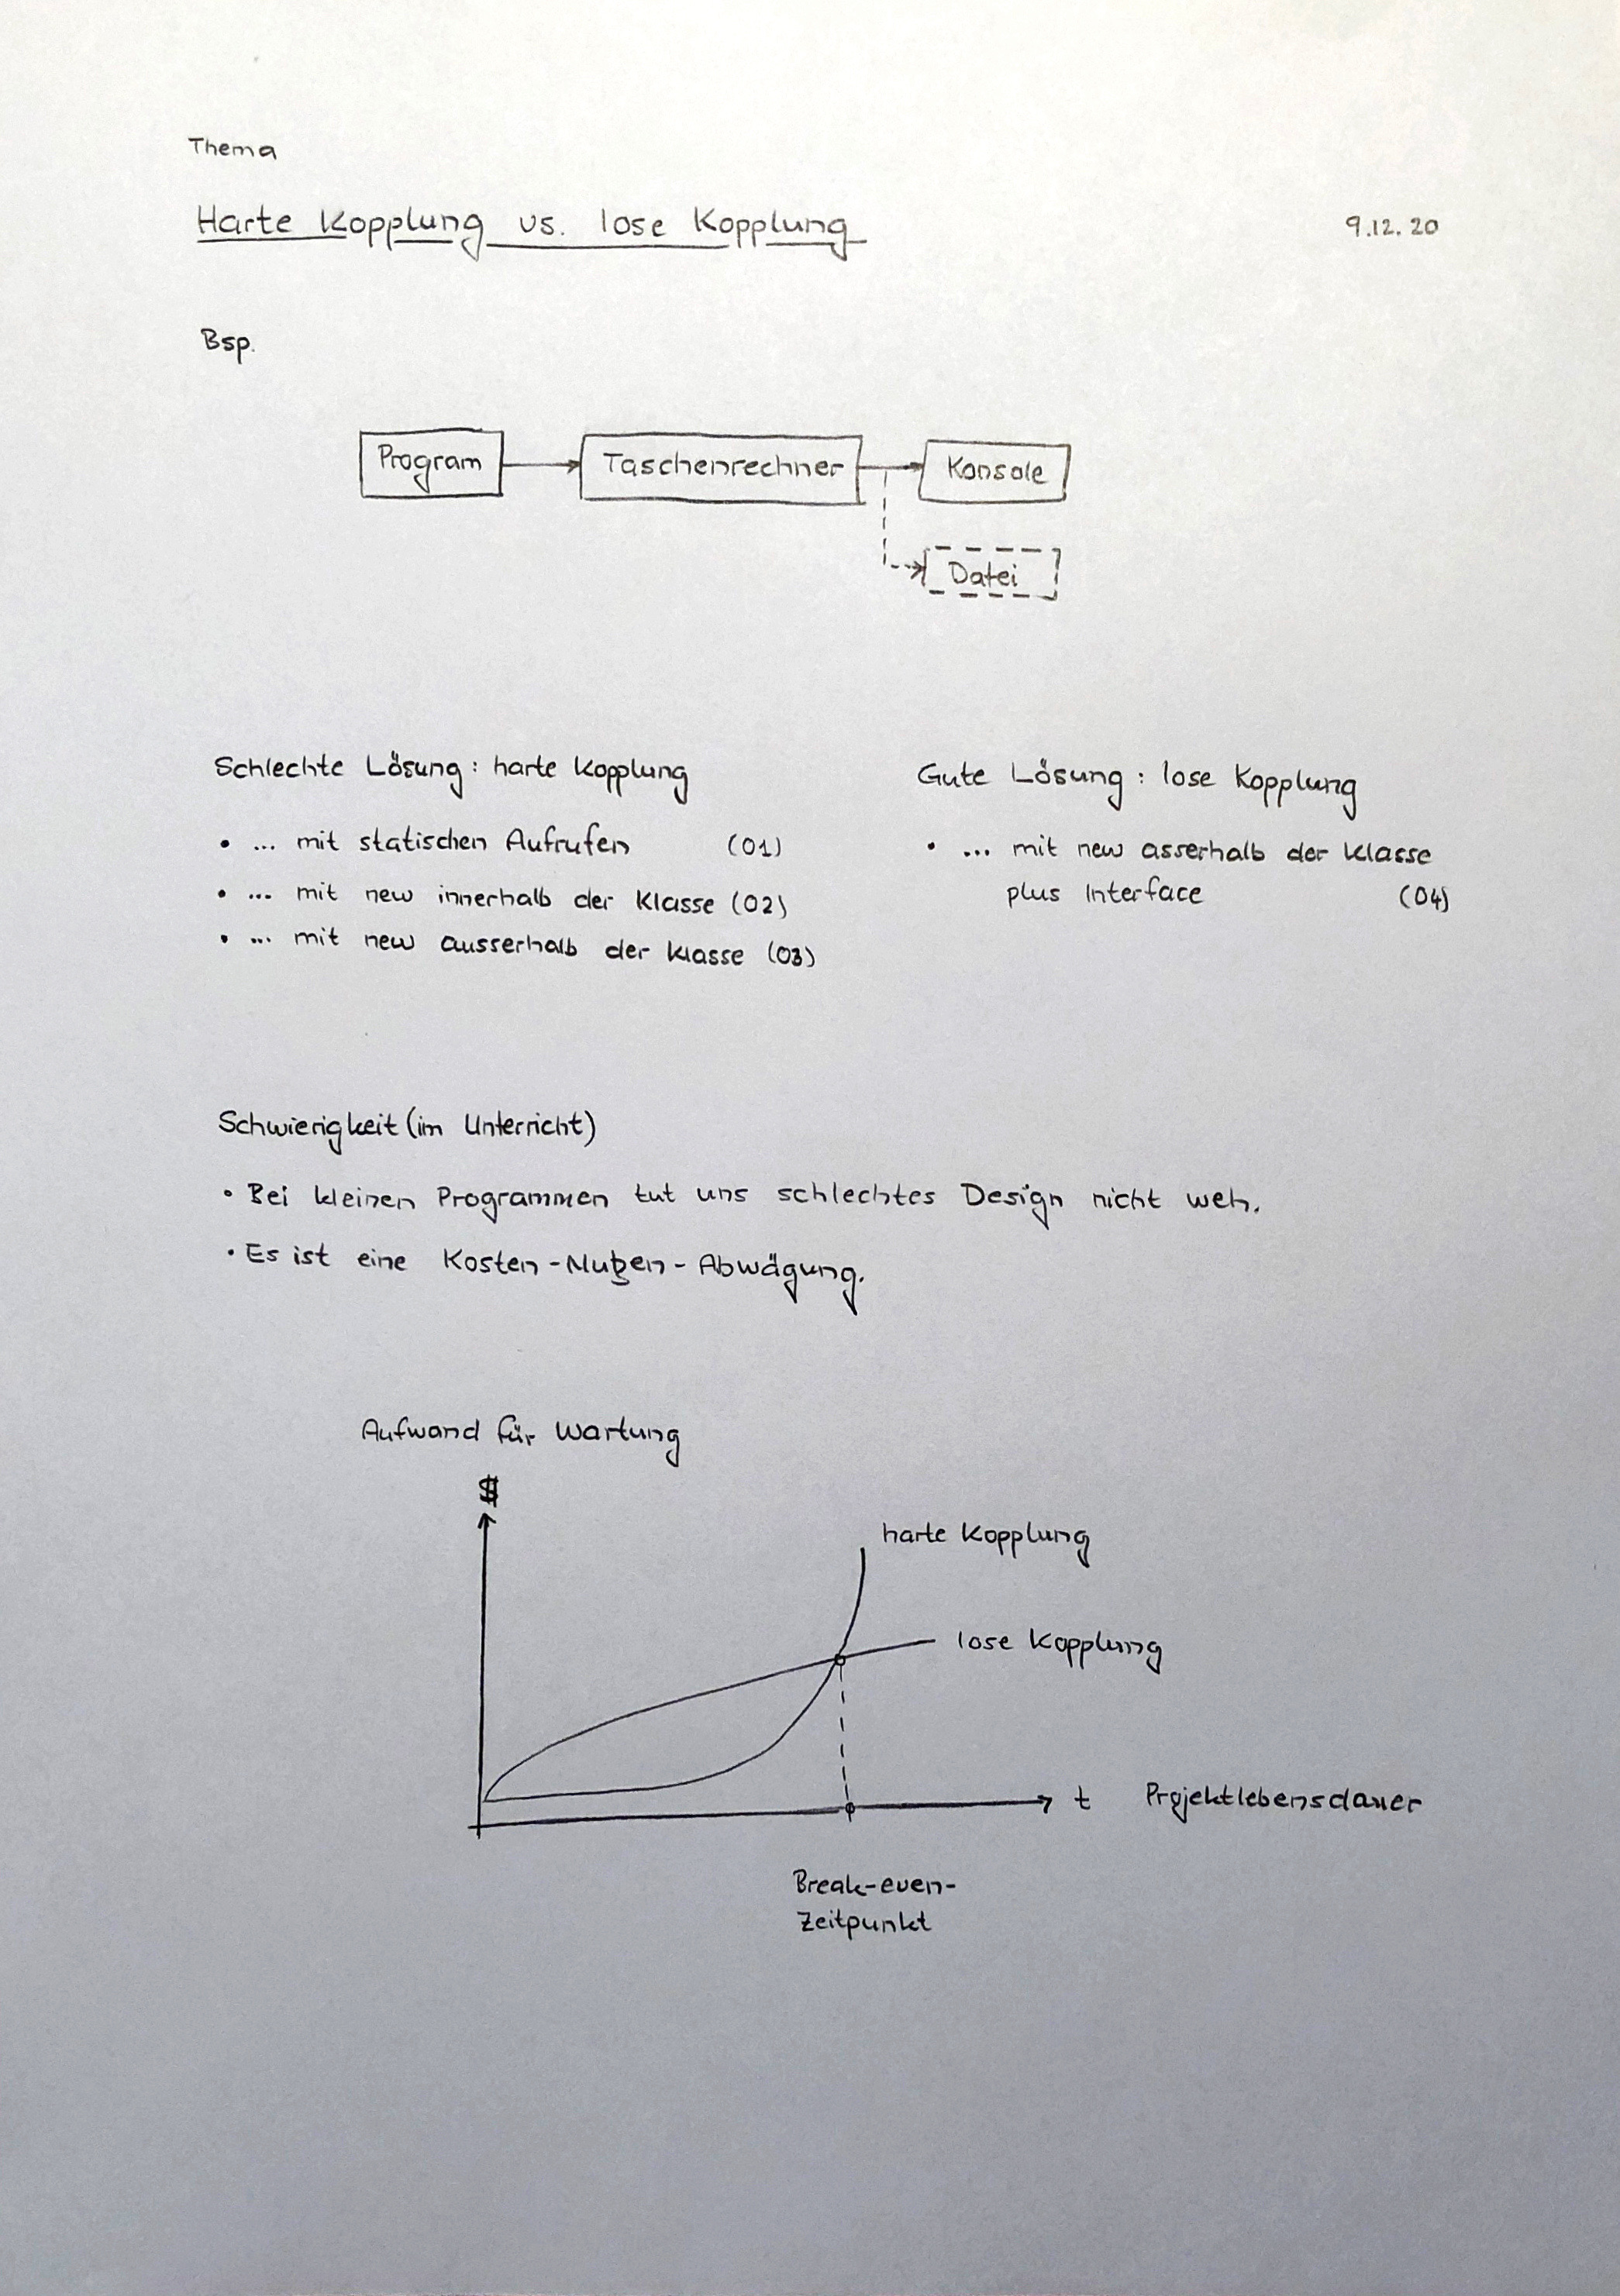 Thema
Harte Kopplung vs. lose Kopplung
9.12.20
Bsp.
Program
Taschenrechner
Konsole
Datei
Schlechte Lösung: harte Kopplung
• ... mit statischen Aufrufen (01)
• ... mit new innerhalb der Klasse (02)
• ... mit new ausserhalb der Klasse (03)
Gute Lösung: lose Kopplung
• ... mit new asserhalb der Klasse
plus Interface (04)
Schwierigkeit (im Unterricht)
• Bei kleinen Programmen tut uns schlechtes Design nicht weh.
• Es ist eine Kosten-Nutzen-Abwägung.
Aufwand für Wartung
$
harte Kopplung
lose Kopplung
t Projektlebensdauer
Break-even-
Zeitpunkt